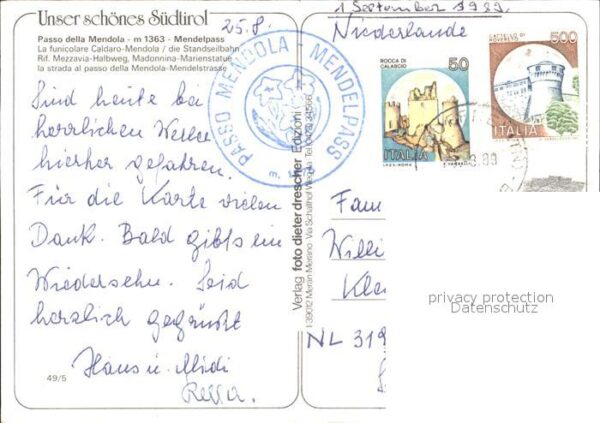 Unser schönes Südtirol
25.8.
Passo della Mendola - m 1363 - Mendelpass
La funicolare Caldaro-Mendola / die Standseilbahn
Rif. Mezzavia-Halbweg, Madonnina-Marienstatue
la strada al passo della Mendola-Mendelstrasse
Sind heute bei
herrlichen Wetter
hierher gefahren.
Für die Karte vielen
Dank. Bald gibts ein
Wiedersehn. Seid
herzlich gegrüßt
Hans u. Midi
49/5
PASSO MENDOLA MENDELPASS
Verlag foto dieter drescher Edizioni
I-39012 Meran Merano
1 September 1989.
Niederlande
50
ROCCA DI
CALASCIO
ITALIA
500
CASTELLO DI
ROVERETO
ITALIA
Fam
Willi
Kla
NL 319
privacy protection
Datenschutz